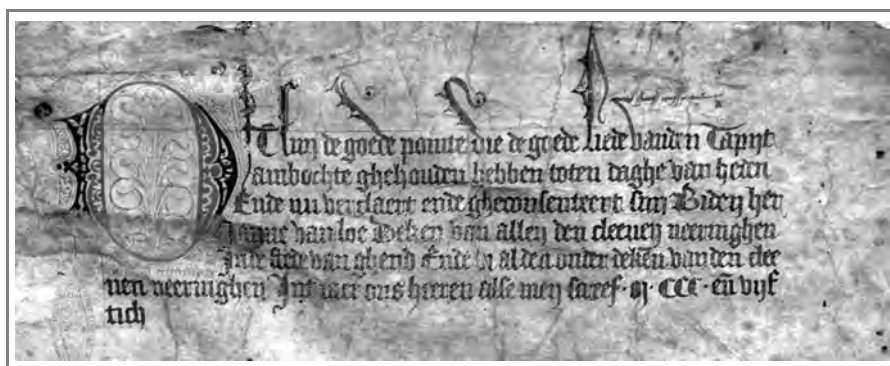 Dit zijn de goede pointe die de goede liede vanden Tapijt
ambochte ghehouden hebben toten daghe van heden
Ende nu verclaert ende gheconsenteert sijn Biden her
Janne van loe Deken van allen den cleenen neeringhen
Inde stede van ghend Ende bi al den onder deken van den clee
nen neeringhen Int iaer ons heeren alse men screef · m · CCC · eñ vijf
tich